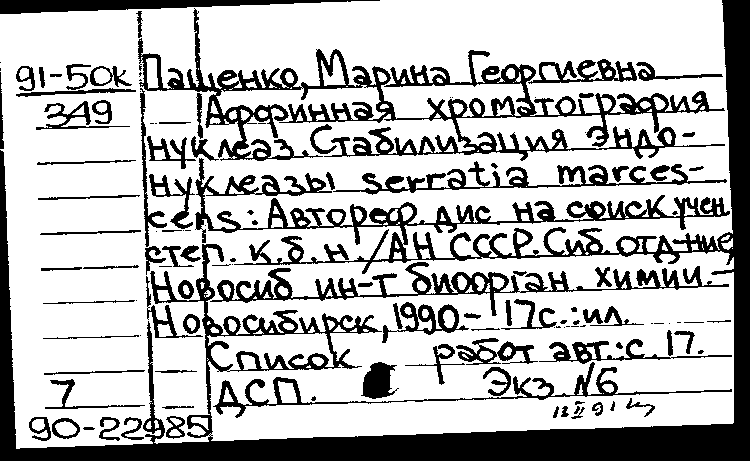 91-50к Пащенко, Марина Георгиевна
349 Аффинная хроматография
нуклеаз. Стабилизация эндо-
нуклеазы serratia marces-
cens: Автореф. дис на соиск. учен
степ. к.б.н. /АН СССР. Сиб. отд-ние,
Новосиб ин-т биоорган. химии.-
Новосибирск, 1990.- 17с.:ил.
Список работ авт.: с. 17.
7 ДСП. Экз. №6
90-22985